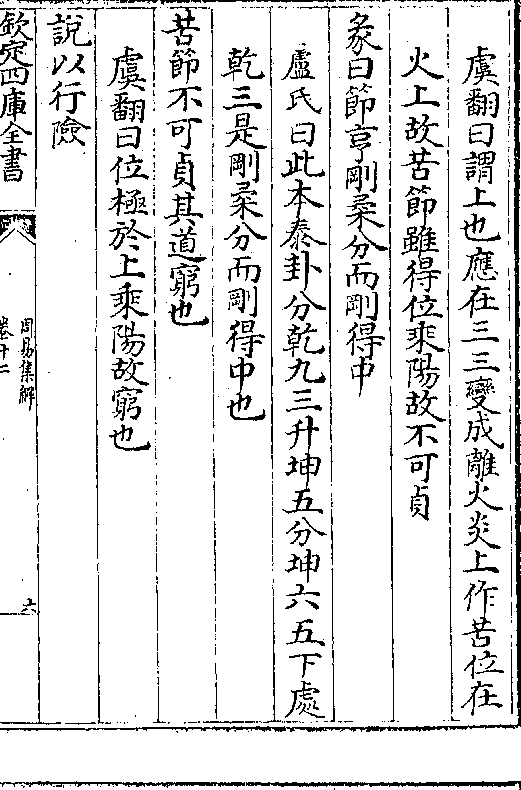 虞翻曰謂上也應在三三變成離火炎上作苦位在
火上故苦節雖得位乘陽故不可貞
彖曰節亨剛柔分而剛得中
盧氏曰此本泰卦分乾九三升坤五分坤六五下處
乾三是剛柔分而剛得中也
苦節不可貞其道窮也
虞翻曰位極於上乘陽故窮也
說以行險
欽定四庫全書
周易集解
卷十二
六